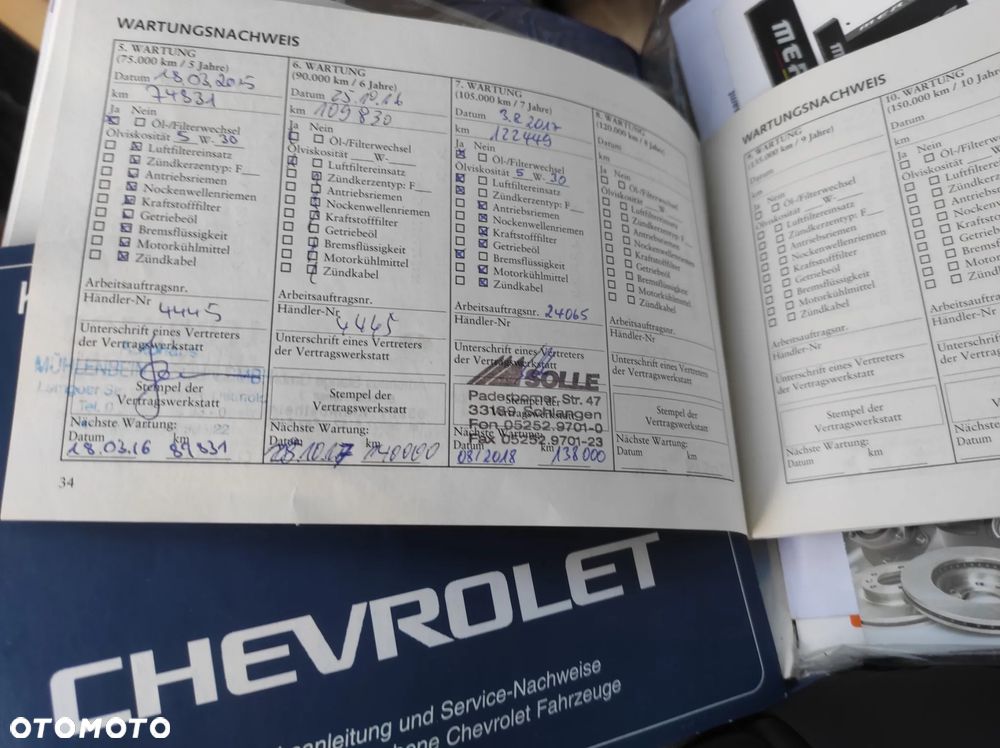 WARTUNGSNACHWEIS
5. WARTUNG
(75.000 km / 5 Jahre)
Datum 18.03.2015
km 74831
Ja Nein
Öl-/Filterwechsel
Ölviskosität 5 W- 30
Luftfiltereinsatz
Zündkerzentyp: F__
Antriebsriemen
Nockenwellenriemen
Kraftstofffilter
Getriebeöl
Bremsflüssigkeit
Motorkühlmittel
Zündkabel
Arbeitsauftragsnr.
Händler-Nr
4445
Unterschrift eines Vertreters
der Vertragswerkstatt
Stempel der
Vertragswerkstatt
Nächste Wartung:
Datum km
18.03.16 89831
6. WARTUNG
(90.000 km / 6 Jahre)
Datum 25.10.16
km 109830
Ja Nein
Öl-/Filterwechsel
Ölviskosität __W-__
Luftfiltereinsatz
Zündkerzentyp: F__
Antriebsriemen
Nockenwellenriemen
Kraftstofffilter
Getriebeöl
Bremsflüssigkeit
Motorkühlmittel
Zündkabel
Arbeitsauftragsnr.
Händler-Nr
4445
Unterschrift eines Vertreters
der Vertragswerkstatt
Stempel der
Vertragswerkstatt
Nächste Wartung:
Datum km
140000
7. WARTUNG
(105.000 km / 7 Jahre)
Datum 3.8.2017
km 122449
Ja Nein
Öl-/Filterwechsel
Ölviskosität 5 W- 30
Luftfiltereinsatz
Zündkerzentyp: F__
Antriebsriemen
Nockenwellenriemen
Kraftstofffilter
Getriebeöl
Bremsflüssigkeit
Motorkühlmittel
Zündkabel
Arbeitsauftragsnr. 24065
Händler-Nr
Unterschrift eines Vertreters
der Vertragswerkstatt
SOLLE
Paderborner Str. 47
33189 Schlangen
Fon 05252.9701-0
Fax 05252.9701-23
Stempel der
Vertragswerkstatt
Nächste Wartung:
Datum km
08/2018 138000
8. WARTUNG
(120.000 km / 8 Jahre)
Datum
km
Ja Nein
Öl-/Filterwechsel
Ölviskosität __W-__
Luftfiltereinsatz
Zündkerzentyp: F__
Antriebsriemen
Nockenwellenriemen
Kraftstofffilter
Getriebeöl
Bremsflüssigkeit
Motorkühlmittel
Zündkabel
Arbeitsauftragsnr.
Händler-Nr
Unterschrift eines Vertreters
der Vertragswerkstatt
Stempel der
Vertragswerkstatt
Nächste Wartung:
Datum km
34
WARTUNGSNACHWEIS
9. WARTUNG
(135.000 km / 9 Jahre)
Datum
km
Ja Nein
Öl-/Filterwechsel
Ölviskosität __W-__
Luftfiltereinsatz
Zündkerzentyp: F__
Antriebsriemen
Nockenwellenriemen
Kraftstofffilter
Getriebeöl
Bremsflüssigkeit
Motorkühlmittel
Zündkabel
Arbeitsauftragsnr.
Händler-Nr
Unterschrift eines Vertreters
der Vertragswerkstatt
Stempel der
Vertragswerkstatt
Nächste Wartung:
Datum km
10. WARTUNG
(150.000 km / 10 Jahre
Datum
km
Ja Nein
CHEVROLET
anleitung und Service-Nachweise
Chevrolet Fahrzeuge
OTOMOTO